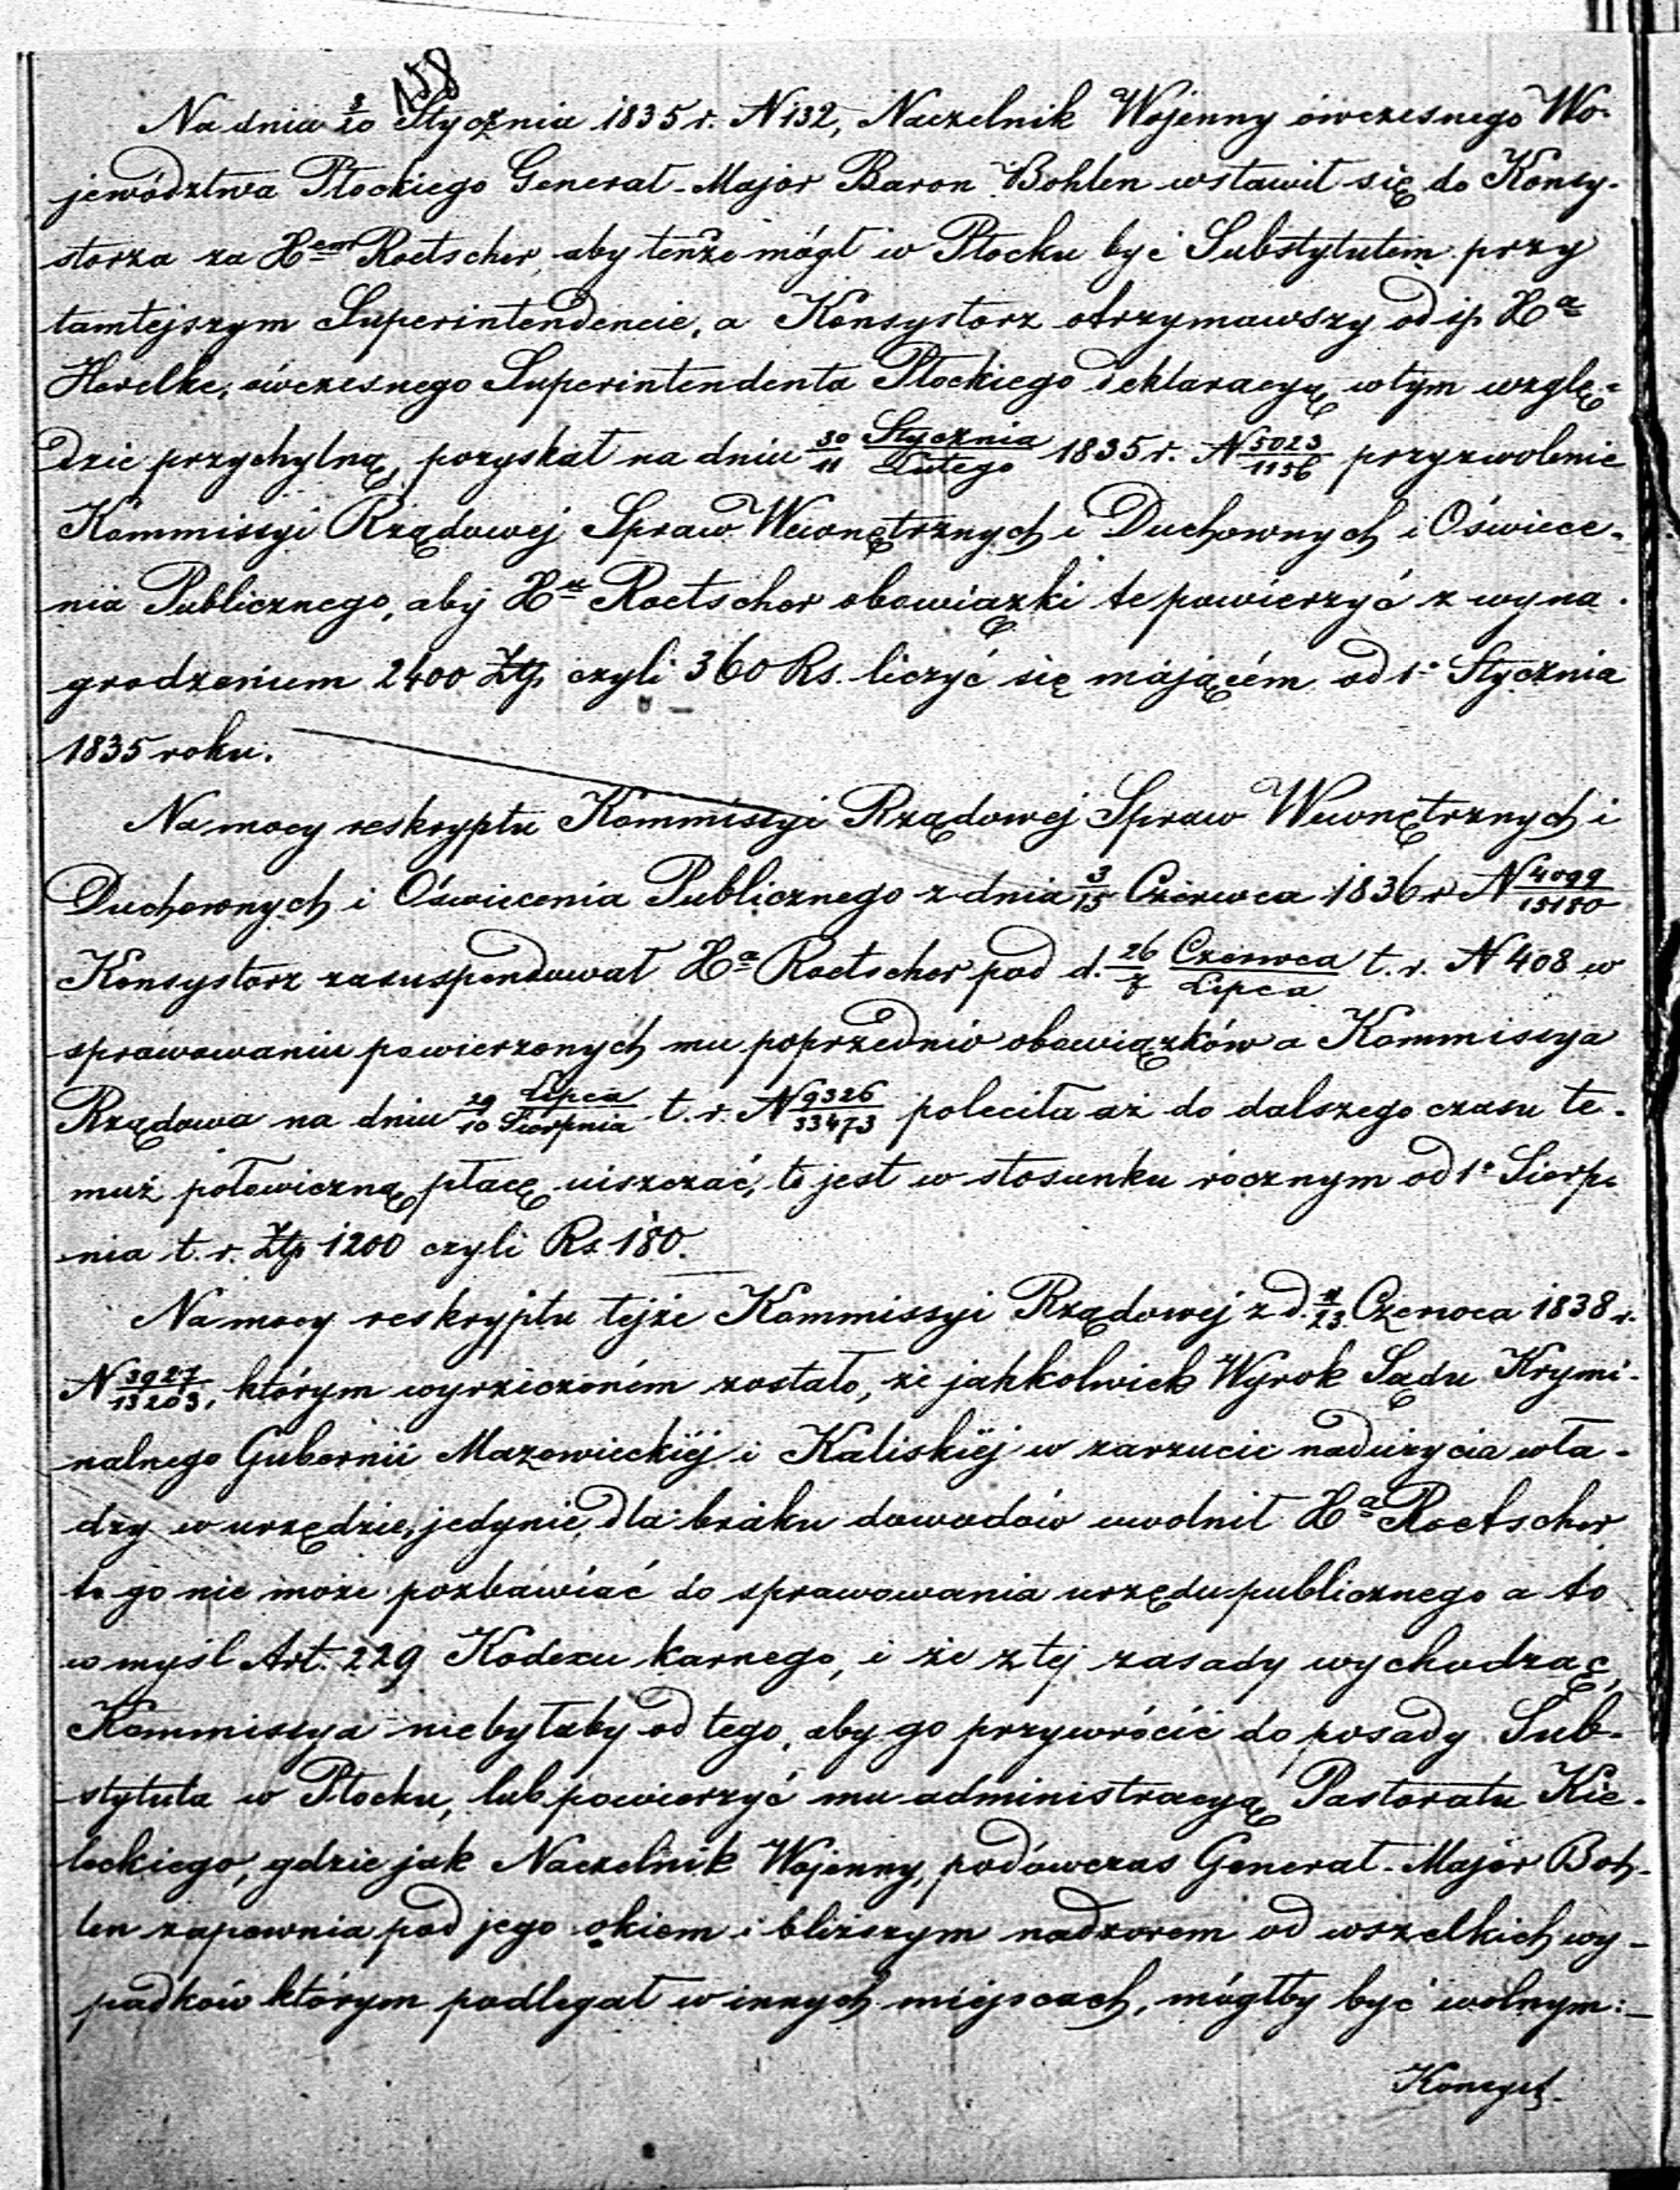 158
Na dnia 8/20 Stycznia 1835 r. N 132, Naczelnik Wojenny ówczesnego Wo-
jewództwa Płockiego Generał-Major Baron Bohlen wstawił się do Konsy-
storza za Xem Roetscher, aby tenże mógł w Płocku być Substytutem przy
tamtejszym Superintendencie, a Konsystorz otrzymawszy od śp. Xa
Havelke, ówczesnego Superintendenta Płockiego deklaracyę w tym wzglę-
dzie przychylną, pozyskał na dniu 30/11 Stycznia/Lutego 1835 r. N 5023/1156 przyzwolenie
Kommissyi Rządowej Spraw Wewnętrznych i Duchownych i Oświece-
nia Publicznego, aby Xu Roetscher obowiązki te powierzyć z wyna-
grodzeniem 2400 Złp. czyli 360 Rs. liczyć się mającém od 1o Stycznia
1835 roku.
Na mocy reskryptu Kommissyi Rządowej Spraw Wewnętrznych i
Duchownych i Oświecenia Publicznego z dnia 3/15 Czerwca 1836 r N 4099/15180
Konsystorz zasuspendował Xa Roetscher pod d. 26/7 Czerwca/Lipca t. r. N 408 w
sprawowaniu powierzonych mu poprzednio obowiązków a Kommissya
Rządowa na dniu 29/10 Lipca/Sierpnia t. r. N 9326/33473 poleciła aż do dalszego czasu te-
muż połowiczną płacę uiszczać, to jest w stosunku rocznym od 1o Sierp-
nia t. r. Złp 1200 czyli Rs. 180.
Na mocy reskryptu tejże Kommissyi Rządowej z d. 11/23. Czerwca 1838 r.
N 3927/13203, którym wyrzeczoném zostało, że jakkolwiek Wyrok Sądu Krymi-
nalnego Gubernii Mazowieckiéj i Kaliskiéj w zarzucie nadużycia wła-
dzy w urzędzie, jedynie dla braku dowodów uwolnił Xa Roetscher,
to go nie może pozbawiać do sprawowania urzędu publicznego a to
w myśl Art. 229 Kodexu karnego, i że z tej zasady wychodząc,
Kommissya niebyłaby od tego, aby go przywrócić do posady Sub-
stytuta w Płocku, lub powierzyć mu administracyą Pastoratu Kie-
leckiego, gdzie jak Naczelnik Wojenny, podówczas Generał-Major Boh-
len zapewnia pod jego okiem i bliższym nadzorem od wszelkich wy-
padków którym podlegał w innych miejscach, mógłby być wolnym:-
Konsyst-